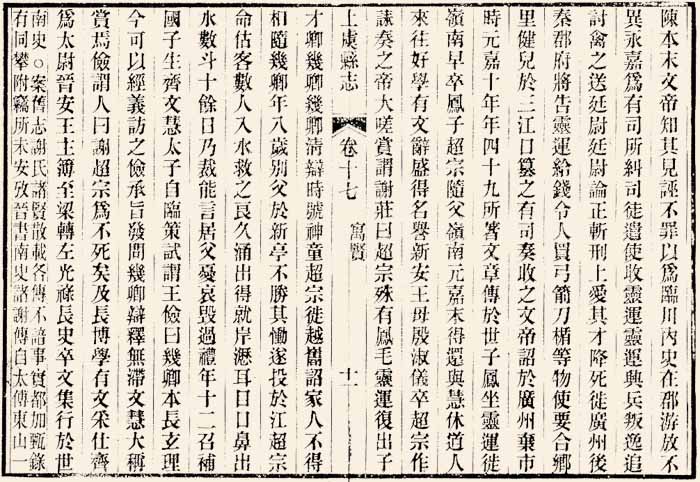 陳本末文帝知其見誣不罪以爲臨川內史在郡游放不
異永嘉爲有司所糾司徒遣使收靈運靈運興兵叛逸追
討禽之送延尉延尉論正斬刑上愛其才降死徙廣州後
秦郡府將告靈運給錢令人買弓箭刀楯等物使要合鄉
里健兒於三江口簒之有司奏收之文帝詔於廣州棄市
時元嘉十年年四十九所著文章傳於世子鳳坐靈運徙
嶺南早卒鳳子超宗隨父嶺南元嘉末得還與慧休道人
來往好學有文辭盛得名譽新安王母殷淑儀卒超宗作
誄奏之帝大嗟賞謂謝莊曰超宗殊有鳳毛靈運復出子
上虞縣志 卷十七 寓賢 十一
才卿幾卿幾卿清辯時號神童超宗徙越嶲詔家人不得
相隨幾卿年八歲別父於新亭不勝其慟遂投於江超宗
命估客數人入水救之良久涌出得就岸瀝耳目口鼻出
水數斗十餘日乃裁能言居父憂哀毀過禮年十二召補
國子生齊文慧太子自臨策試謂王儉曰幾卿本長玄理
今可以經義訪之儉承旨發問幾卿辯釋無滯文慧大稱
賞焉儉謂人曰謝超宗爲不死矣及長博學有文采仕齊
爲太尉晉安王主簿至梁轉左光祿長史卒文集行於世
南史○案舊志謝氏諸賢散載各傳不諳事實都加甄錄
有同攀附竊所未安攷晉書南史諸謝傳自太傅東山一